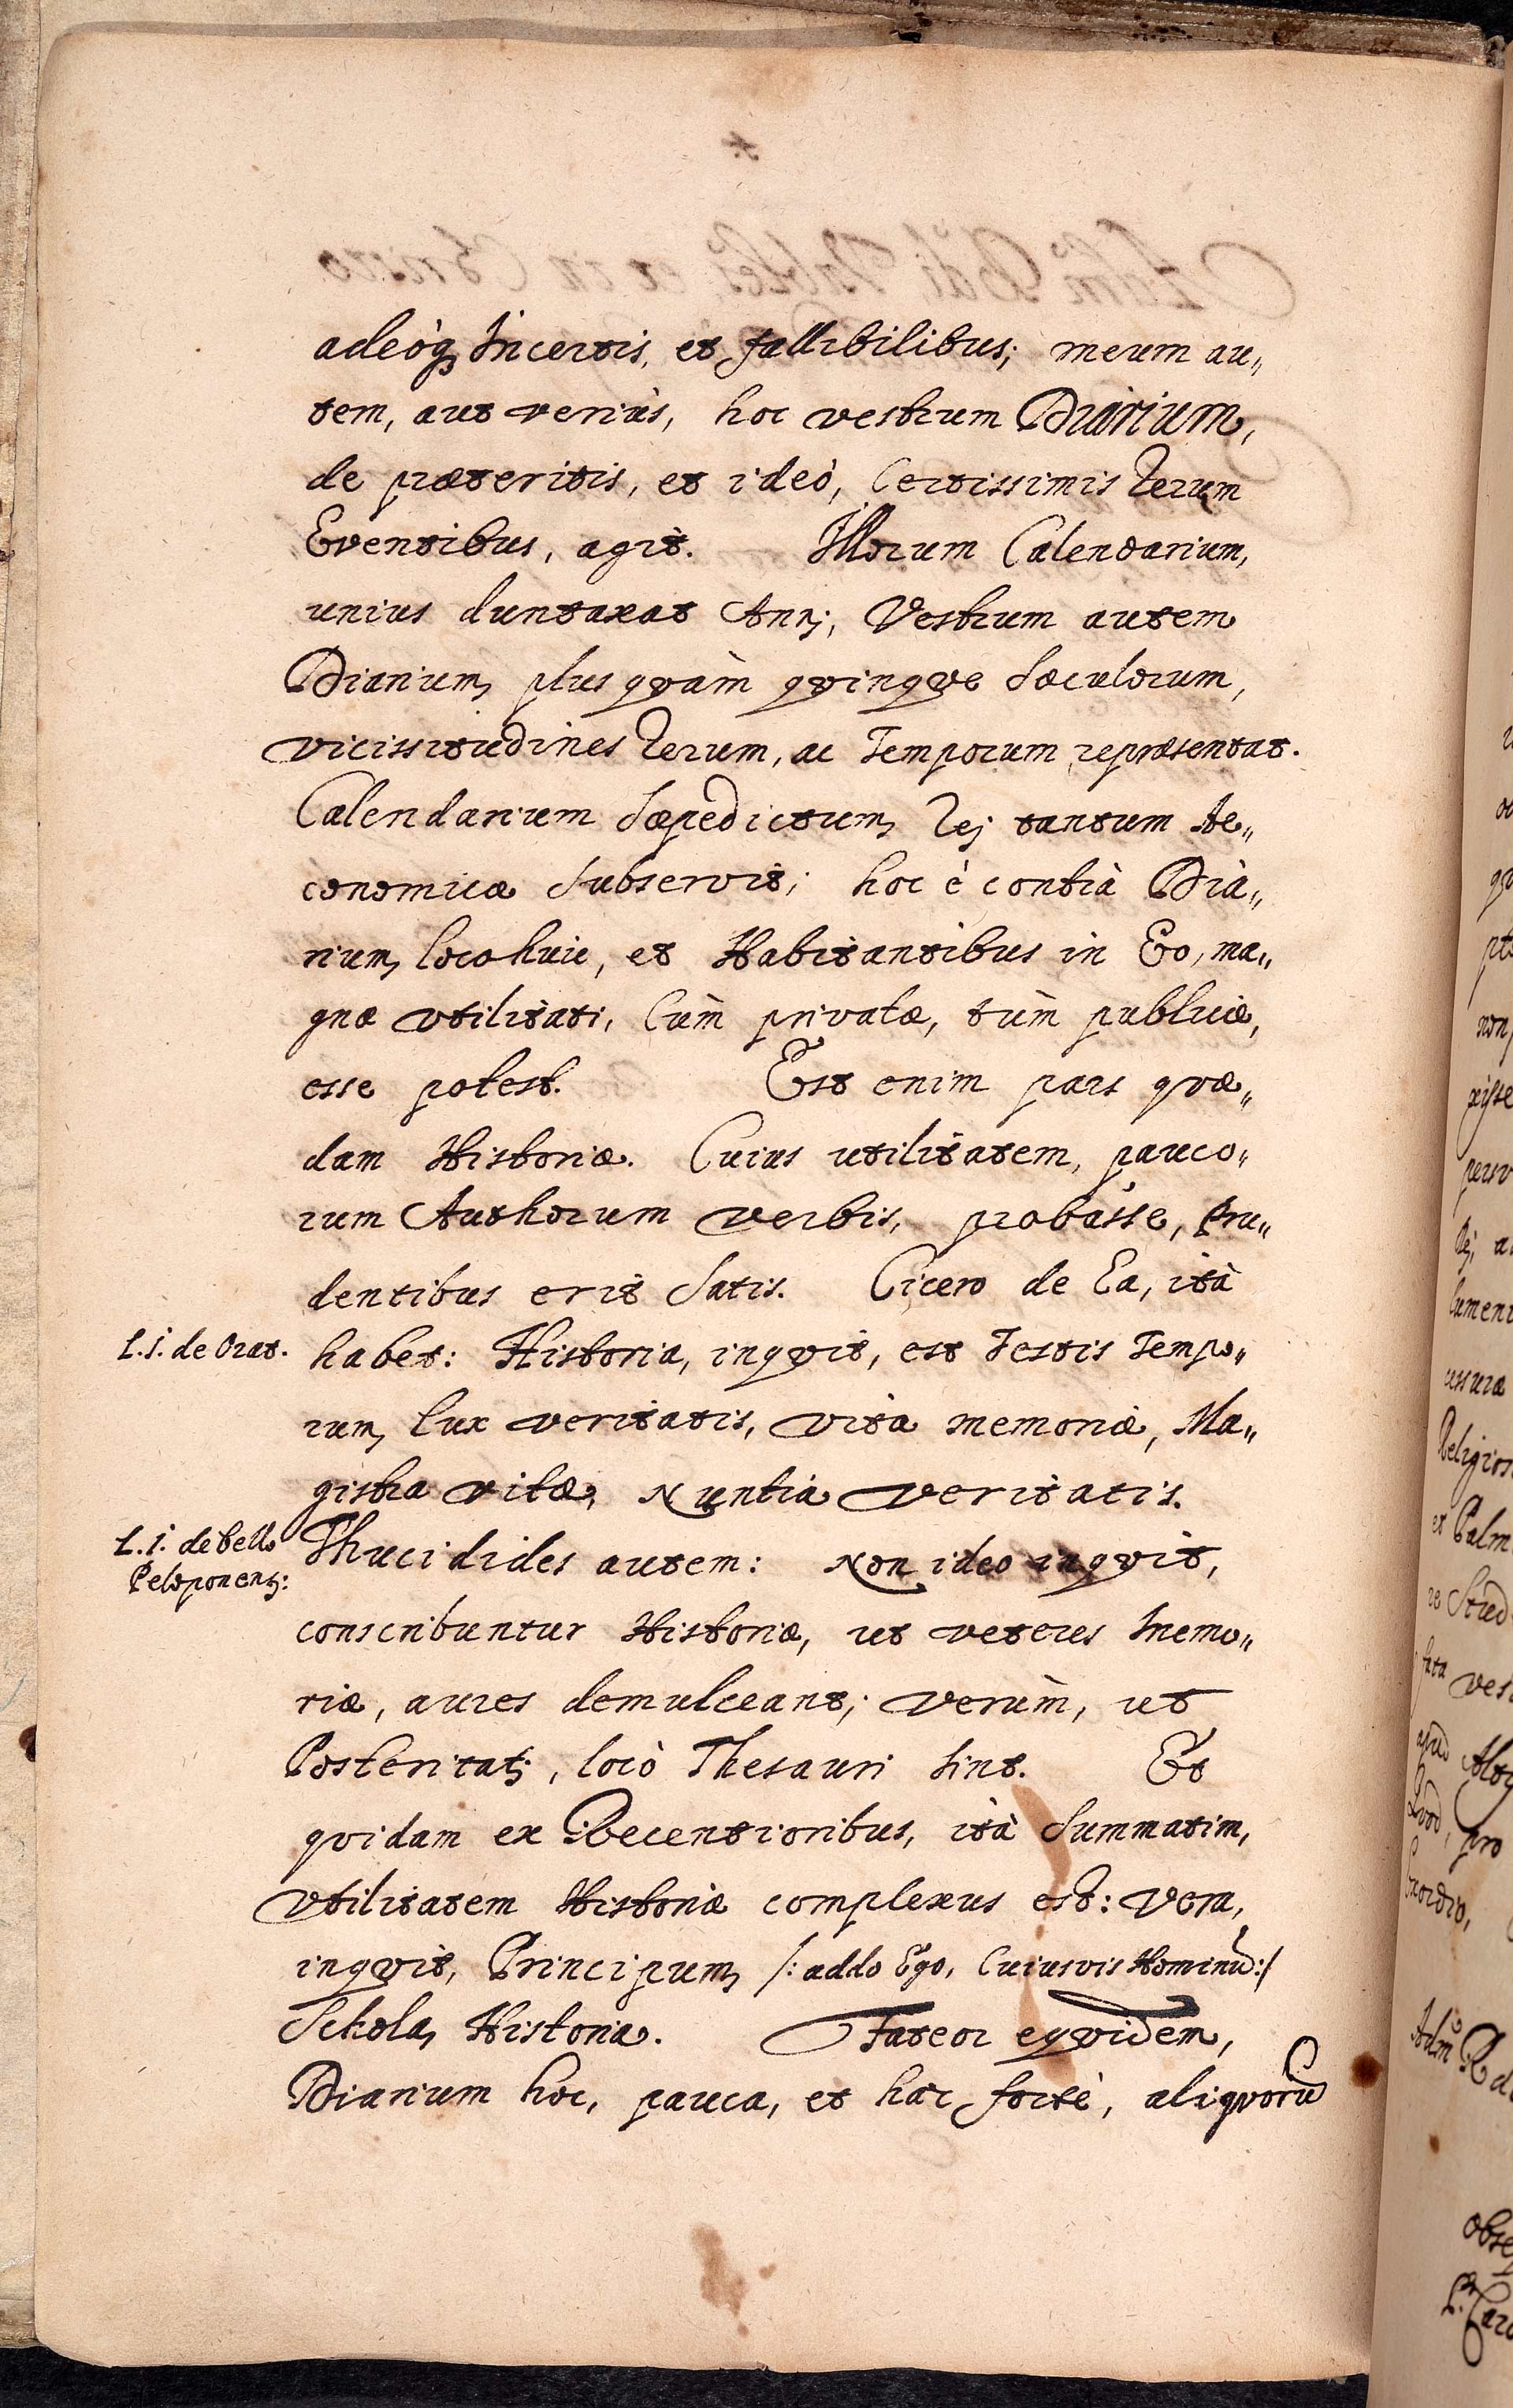 adeoq́; Incertis, et fallibilibus; meum au„
tem, aut veriùs, hoc vestrum Diarium,
de præteritis, et ideò, Certissimis Rerum
Eventibus, agit. Illorum Calendarium,
unius duntaxat Annj, Vestrum autem
Diarium, plus qvàm qvinqve Sæculorum,
vicissitudines Rerum, ac Temporum repræsentat.
Calendarium Sæpedictum, Rej tantum Ae„
conomicæ Subservit; hoc è contrà Dia„
rium, loco huic, et Habitantibus in Eo, ma„
gnæ vtilitati, Cùm privatæ, tùm publicæ,
esse potest. Est enim pars qvæ„
dam Historiæ. Cuius utilitatem, pauco„
rum Authorum verbis, probásse, Pru„
dentibus erit Satis. Cicero de Ea, ità
L.1. de Orat. habet: Historia, inqvit, est Testis Tempo„
rum, lux veritatis, vita memoriæ, Ma„
gistra vitæ, Nuntia veritatis.
L.1. de bello Thucidides autem: Non ideo inqvit,
Peloponens:
conscribuntur Historiæ, ut veteres memo„
riæ, aures demulceant; verùm, ut
Posteritatj, locò Thesauri sint. Et
qvidam ex Recentioribus, ità Summatim,
Vtilitatem Historiæ complexus est: Vera,
inqvit, Principum, /: addo Ego, Cuiusvis Hominũ:/
Schola, Historia. Fateor eqvidem,
Diarium hoc, pauca, et hæc fortè, aliqvorũ